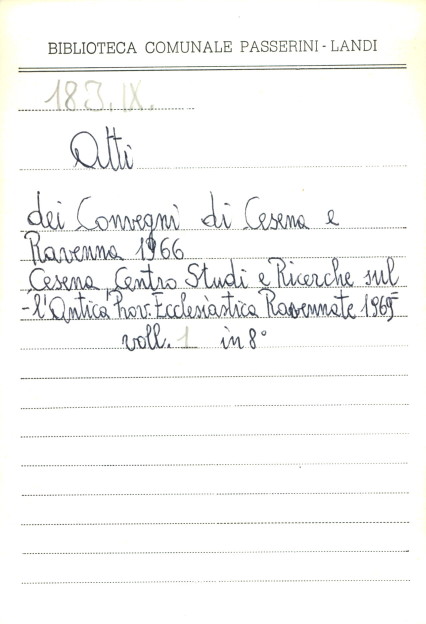 BIBLIOTECA COMUNALE PASSERINI - LANDI
183.IX.
Atti
dei Convegni di Cesena e
Ravenna 1966
Cesena, Centro Studi e Ricerche sul
-l'Antica Prov. Ecclesiastica Ravennate 1969
voll. 1 in 8°